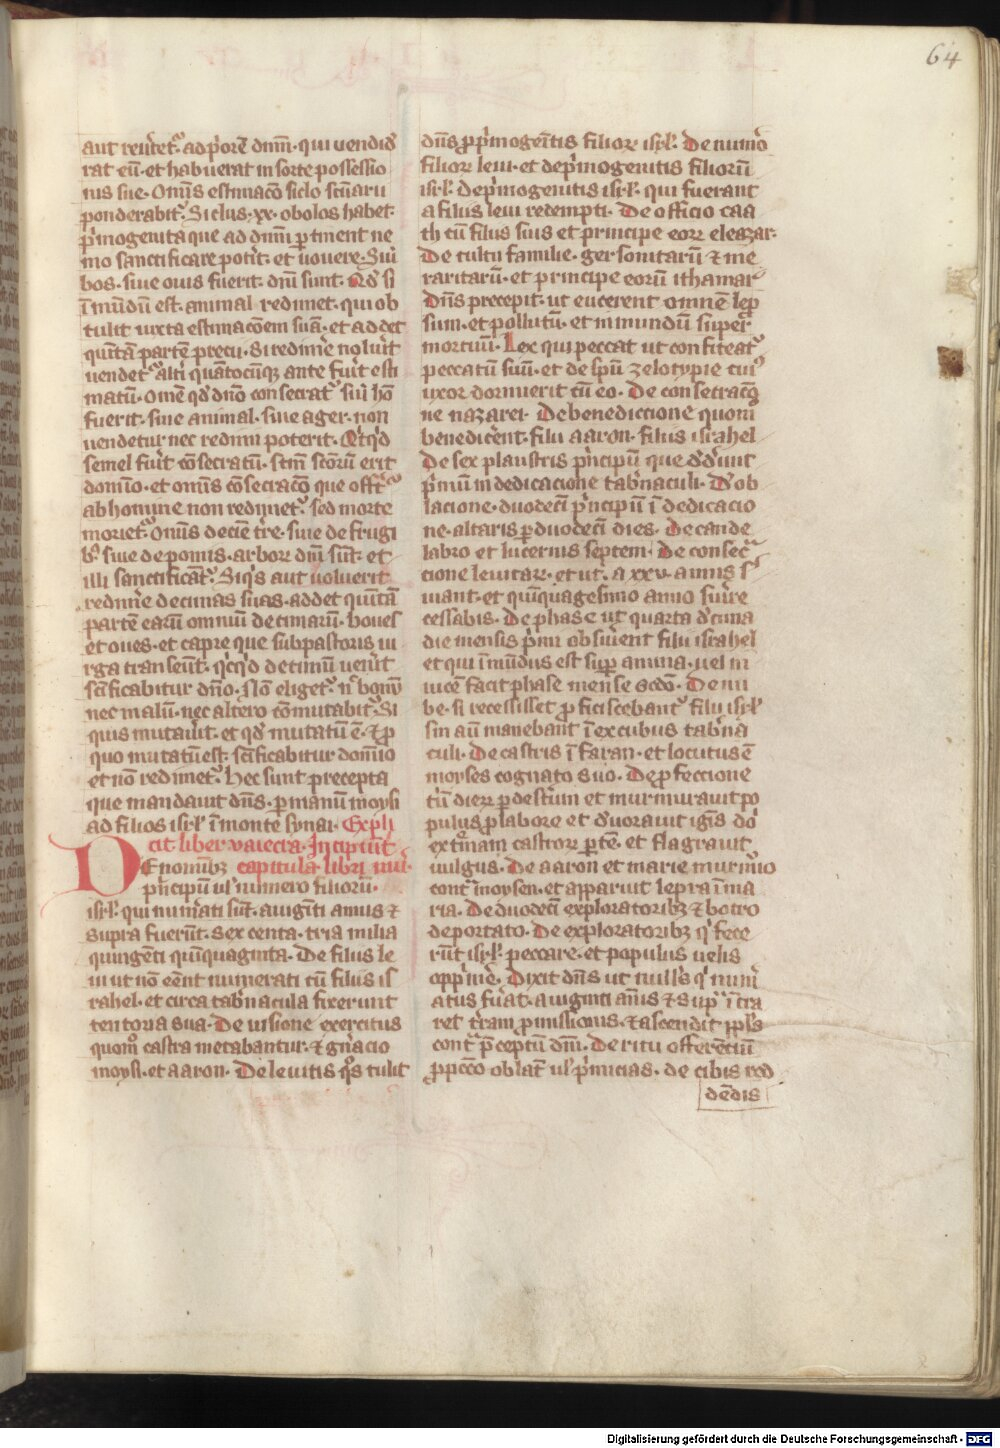 64
aut reu̾tet᷒. ad p̾orē dn̄m. qui uendid̾
rat eū. et habuerat in sorte possessio
nis sue. Omīs estimacō siclo sc̄uaru
ponderabit᷒. Siclus .xx. obolos habet.
p̾mogenita que ad dn̄m ꝑtinent ne
mo sanctificare pot̾it. et uouere. Siū
bos. siue ouis fuerit. dn̄i sunt. Qd̾ si
īmūdū est animal. redimet. qui ob
tulit iuxta estimacōem suā. et addet
quītā partē precii. Si redim̾e noluit
uendet᷒ alt̾i quātocūqꝫ ante fu̾it esti
matū. Om̄e qd̾ dn̄o consecrat᷒ siu̾ hō
fuerit. siue animal. siue ager. non
uendetur nec redimi poterit. Qͥcqͥd
semel fu̾it cōsecratū. sc̄m sc̄orū erit
domīo. et omīs cōsecracō que offert᷒
ab homine non redimet᷒. sed morte
moriet᷒. Omīs decīe t̾re. siue de frugi
bꝫ siue de pomis. arborū dn̄i sūt. et
illi sanctificāt᷒. Si qͥs aut uoluerit
redim̾e decimas suas. addet quītā
partē earū omniū decimarū. boues
et oues. et capre que sub pastoris ui
rga transeūt. qͥcqͥd decimū uen̾it
sc̄ificabitur dn̄o. Nō eliget᷒. nͨ bonū
nec malū. nec altero cōmutabit᷒. Si
quis mutau̾it. et qd̾ mutatū ē. et ꝓ
quo mutatū est. sc̄ificabitur domīo
et nō redimet᷒. Hec sunt precepta
que mandauit dn̄s. ꝑ manū moysi
ad filios isr̄l. ī monte synai. Expli
cit liber vaiecra. Incipiūt
De nominibꝫ capitula libri nui.
p̾ncipū ul̾ numero filiorū.
isr̄l. qui num̾ati sūt. a uigīti annis ⁊
supra fuerūt. sex centa. tria milia
quingēti quīquaginta. De filiis le
ui ut nō eēnt numerati cū filiis is
rahel. et circa tab̾nacula fixerunt
tentoria sua. De uisione exercitus
quom̊ castra metabantur. ⁊ gn̾acio
moysi. et aaron. De leuitis qͦs tulit
dn̄s ꝓ p̾mogēitis filioꝝ isr̄l. De num̾o
filioꝝ leui. et de p̾mogenitis filiorū
isr̄l. De p̾mogenitis isr̄l. qui fuerant
a filiis leui redempti. De officio caa
th cū filiis suis et principe eoꝝ eleazar.
De cultu familie. gersonitarū ⁊ me
raritarū. et principe eorū ithamar
Dn̄s precepit. ut eicerent omnē lep
sum. et pollutū. et inmundū super
mortuū. Lex qui peccat ut confiteat᷒
peccatū suū. et de sp̄u zelotypie cui᷒
uxor dormierit cū eo. De consecracō
ne nazarei. De benediccione quom̊
benedicent. filii aaron. filiis israhel
De sex plaustris p̾ncipū que ded̾unt
p̾mū in dedicacione tab̾naculi. De ob
lacione. duodecī p̾ncipū ī dedicacio
ne. altaris ꝑ duodecī dies. De cande
labro et lucernis septem. De consec̾
cione leuitaꝝ. et ut. a xxv. annis s̾
uiant. et quīquagesimo anno suire
cessabis. De phase ut quarta d̾cima
die mensis p̾mi obs̾uent filii israhel
et qui īmūdus est suꝑ anima. uel in
uicē facit phase mense scd̾o. De nu
be. si recessisset ꝓficiscebant᷒ filii isr̄l
sin aū manebant ī excubiis tab̾na
culi. De castris ī faran. et locutus ē
moyses cognato suo. De ꝓfeccione
t̾ū dieꝝ ꝑ des̾tum et murmurauit po
pulus ꝓ labore et d̾uorauit igīs do
ext̾mam castroꝝ ꝑtē. et flagrauit
uulgus. De aaron et marie murm̾io
cont̾ moysen. et apparuit lepra ī ma
ria. De duodecī exploratoribꝫ ⁊ botro
deportato. De exploratoribꝫ qͥ fece
rūt isr̄l. peccare. et populus uelis
opp̾m̾e. Dixit dn̄s ut nullꝰ qͥ num̾
atus fu̾at. a uiginti annis ⁊ supͣ ītra
ret t̾ram ꝓmissionis. ⁊ ascendit pp̄ls
cont̾ p̾ceptū dn̄i. De ritu offerenciū
ꝓpicc̄o oblat̾ ul̾ p̾micias. de cibis red
dēdis
Digitalisierung gefördert durch die Deutsche Forschungsgemeinschaft - DFG